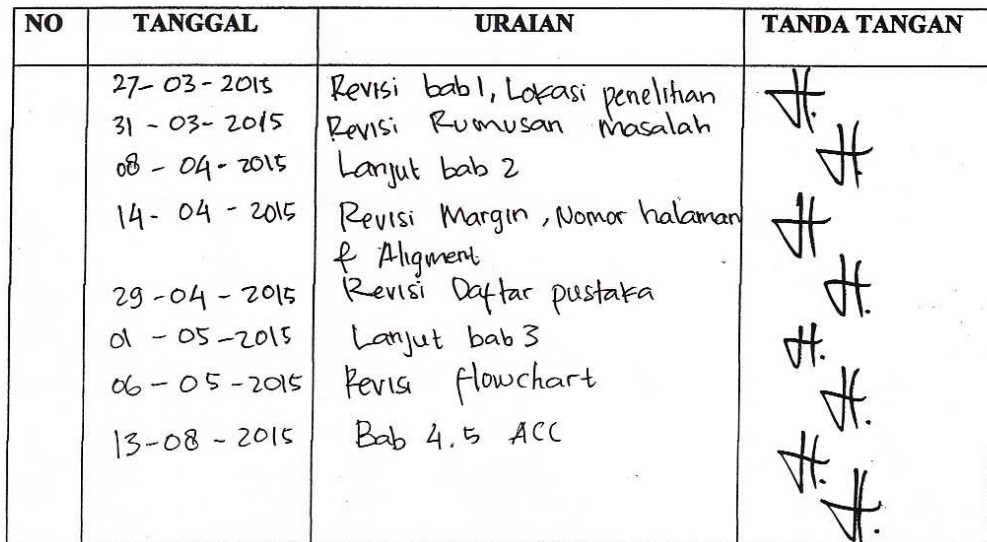 NO TANGGAL URAIAN TANDA TANGAN
27-03-2015 Revisi bab 1, Lokasi penelitian
31-03-2015 Revisi Rumusan Masalah
08-04-2015 Lanjut bab 2
14-04-2015 Revisi Margin, Nomor halaman
& Aligment
29-04-2015 Revisi Daftar pustaka
01-05-2015 Lanjut bab 3
06-05-2015 Revisi flowchart
13-08-2015 Bab 4.5 ACC